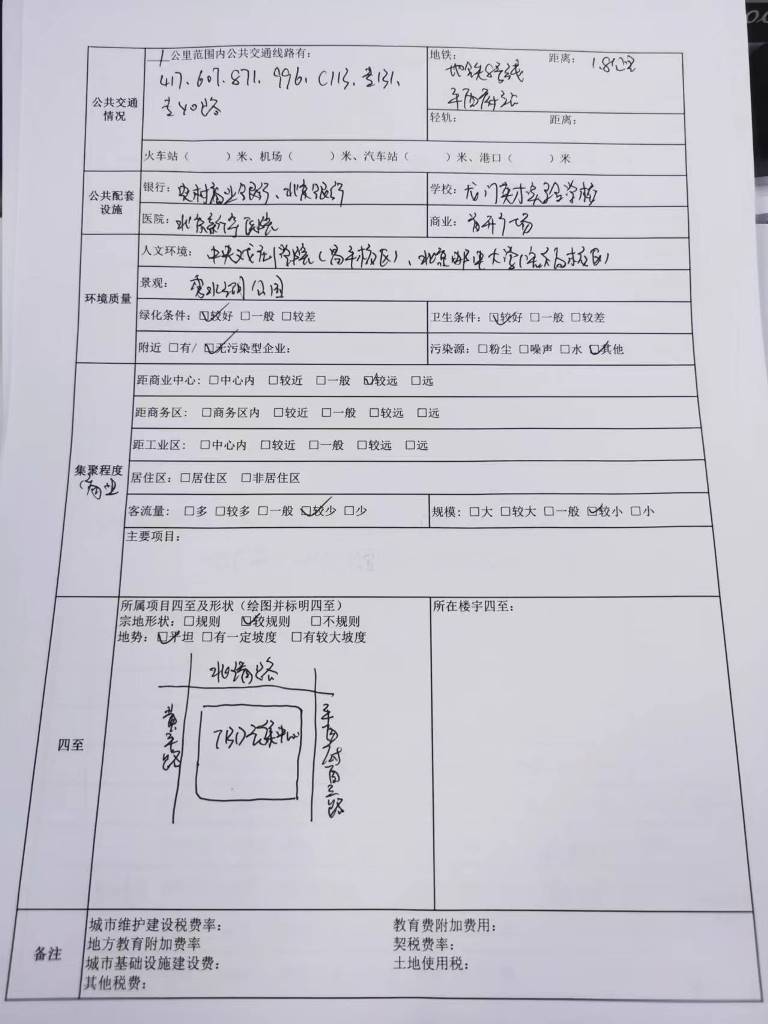 1公里范围内公共交通线路有:
417、607、871、996、C113、专131、
专40路
公共交通情况
地铁: 地铁8号线 距离: 1.8公里
平西府站
轻轨: 距离:
火车站( )米、机场( )米、汽车站( )米、港口( )米
公共配套设施
银行: 农村商业银行、北京银行
学校: 龙门育才实验学校
医院: 北京新华医院
商业: 首开广场
环境质量
人文环境: 中央戏剧学院(昌平校区)、北京邮电大学(宏福校区)
景观: 湾水湖公园
绿化条件: ☑较好 □一般 □较差
卫生条件: ☑较好 □一般 □较差
附近 □有/ ☑无污染型企业:
污染源: □粉尘 □噪声 □水 ☑其他
集聚程度
(商业
距商业中心: □中心内 □较近 □一般 ☑较远 □远
距商务区: □商务区内 □较近 □一般 □较远 □远
距工业区: □中心内 □较近 □一般 □较远 □远
居住区: □居住区 □非居住区
客流量: □多 □较多 □一般 ☑较少 □少
规模: □大 □较大 □一般 ☑较小 □小
主要项目:
四至
所属项目四至及形状(绘图并标明四至)
宗地形状: □规则 ☑较规则 □不规则
地势: ☑平坦 □有一定坡度 □有较大坡度
所在楼宇四至:
北清路
黄平路
TBD云集中心
平西府西三路
备注
城市维护建设税费率:
教育费附加费用:
地方教育附加费率
契税费率:
城市基础设施建设费:
土地使用税:
其他税费: